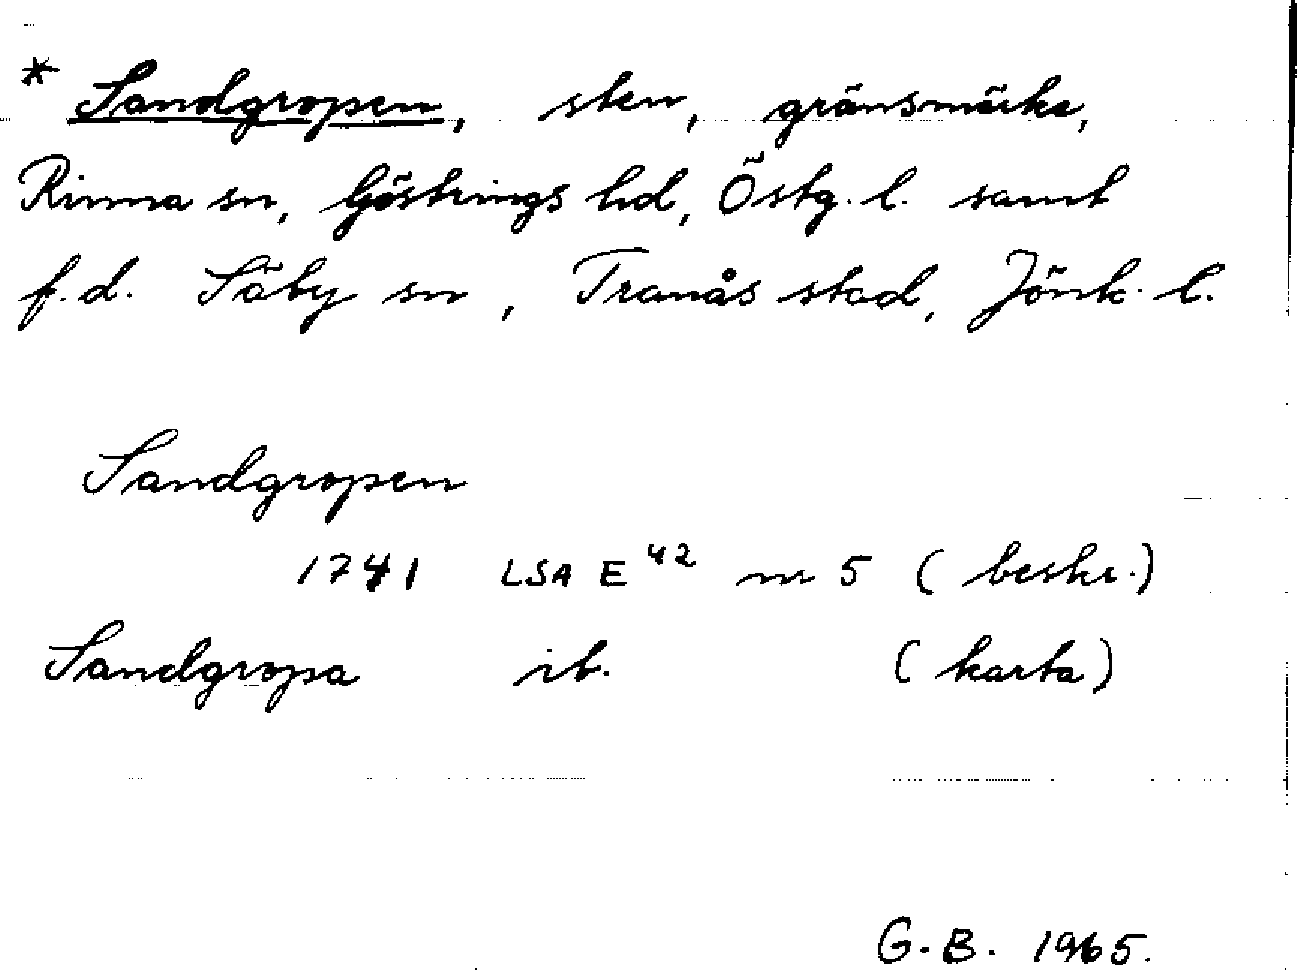 * Sandgropen, sten, gränsmärke,
Rinna sn, Göstrings hd, Östg. l. samt
f.d. Säby sn, Tranås stad, Jönk. l.
Sandgropen
1741 LSA E 42 nr 5 (beskr.)
Sandgropa ib. (karta)
G.B. 1965.